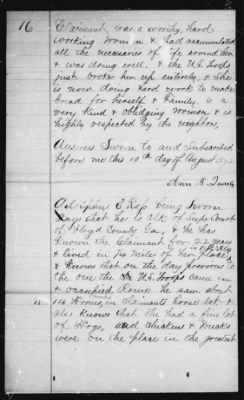 16
Claimant was a worthy, hard
working woman & had accumulated
all the necessaries of life around them
& was doing well. & the U.S. Troops
just broke him up entirely, & she
is now doing hard work to make
bread for herself & Family, is a
very kind & obliging woman & is
highly respected by the neighbors,
Answers Sworn to and Subscribed
before me this 10th day of August
Ann R.
E being Sworn
Says that he is Clk of Supr Court
of Floyd County Ga, & he has
known the Claimant for 22 years
& lived in six miles of her place
& Knows that on the day previous to
the one the U.S. Troops came in
& occupied Rome he saw about
12
Horses, in Claimants horse lot &
also knows that she had a fine lot
of Hogs, and Chickens & Ducks
were on the place in the greatest